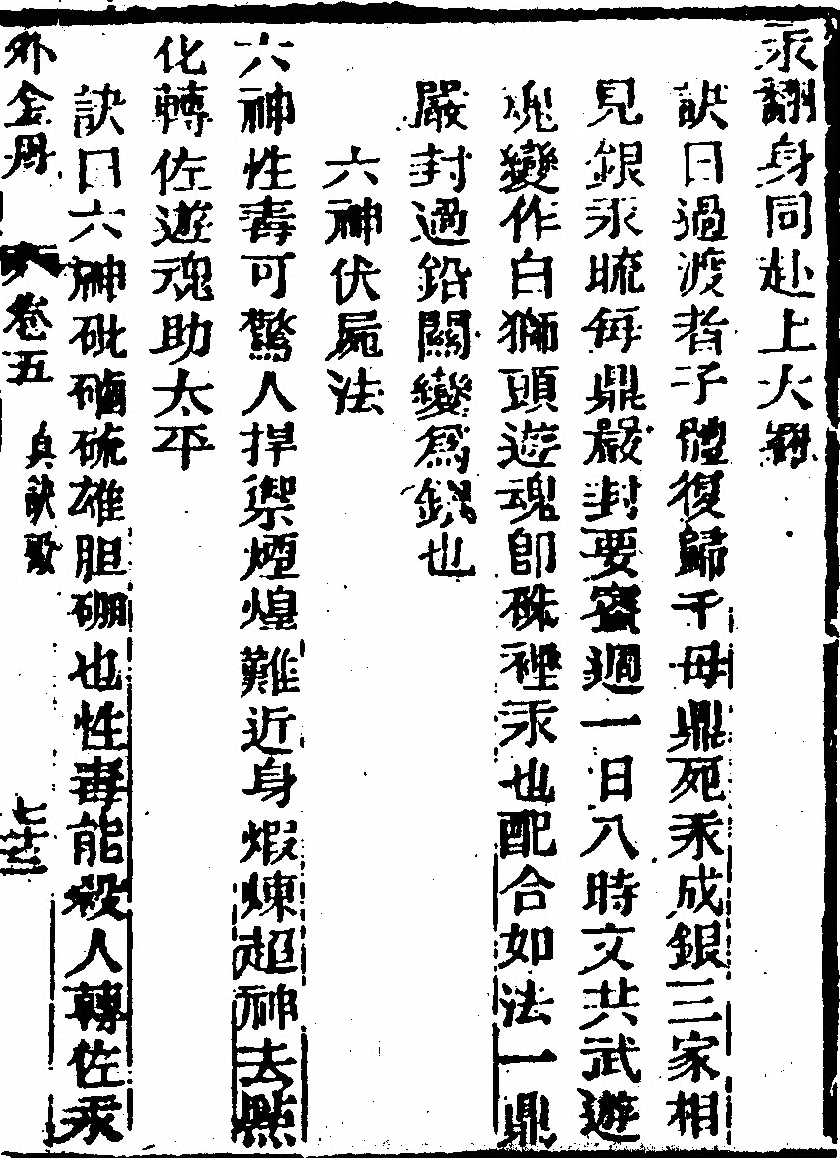 汞翻身同赴上大羅
訣曰過渡者子體復歸于母鼎死汞成銀三家相
見銀汞硫每鼎嚴封要密週一日八時文共武遊
魂變作白獅頭遊魂即硃裡汞也配合如法一鼎
嚴封過鉛關變爲銀也
六神伏屍法
六神性毒可驚人捍禦煙煌難近身煆煉超神去點
化轉佐遊魂助太平
訣曰六神砒硇硫雄胆硼也性毒能殺人轉佐汞
外金丹 卷五 真訣歌